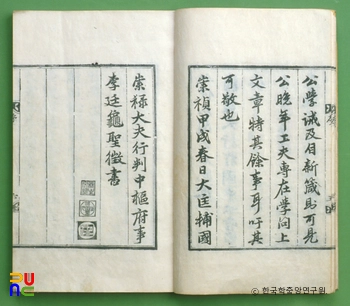 公學誡及日新箴則可見
公晩年工夫專在學問上
文章特其餘事耳吁其
可敬也
崇禎甲戌春日大匡輔國
崇祿大夫行判中樞府事
李廷龜聖徵書
© 한국학중앙연구원